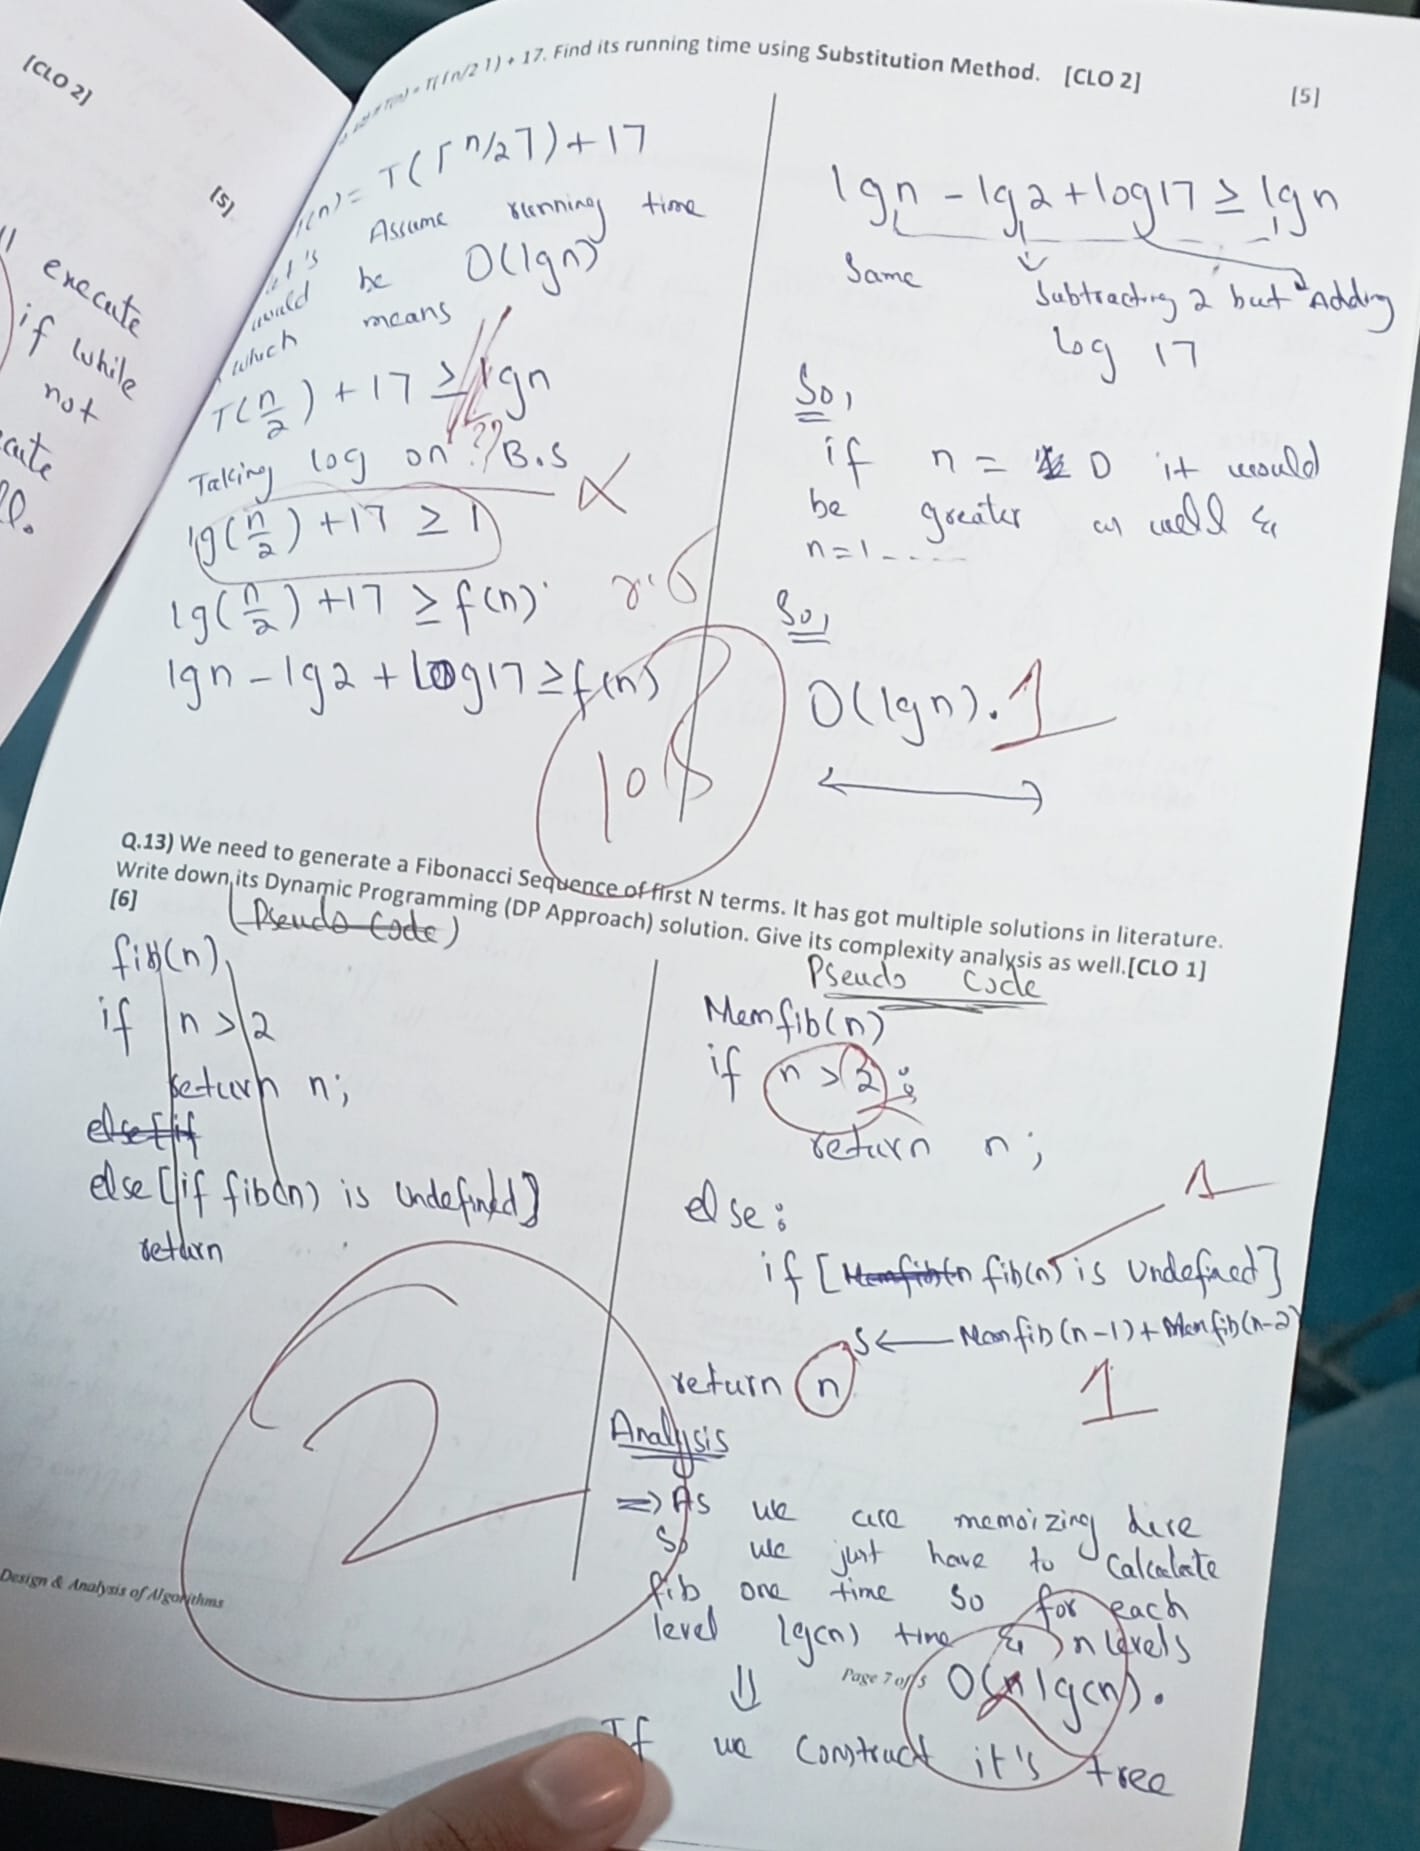 [CLO 2]
[5]
execute
if while
not
T(⌈n/2⌉) + 17. Find its running time using Substitution Method. [CLO 2]
[5]
T(n) = T(⌈n/2⌉) + 17
Assume running time
would be O(lgn)
which means
T(n/2) + 17 ≥ lgn
??
Taking log on B.S
lg(n/2) + 17 ≥ 1
lg(n/2) + 17 ≥ f(n)
lgn - lg2 + log17 ≥ f(n)
lgn - lg2 + log17 ≥ lgn
Same
Subtracting 2 but Adding
log 17
So,
if n = 0 it would
be greater as well &
n=1 - ....
So,
O(lgn).
1
Q.13) We need to generate a Fibonacci Sequence of first N terms. It has got multiple solutions in literature.
Write down its Dynamic Programming (DP Approach) solution. Give its complexity analysis as well.[CLO 1]
[6]
(Pseudo Code)
fib(n)
if n > 2
return n;
else if
else [if fib(n) is undefined]
return
2
Pseudo Code
Memfib(n)
if n > 2:
return n;
else:
1
if [Memfib(n fib(n) is Undefined]
S ← Memfib(n-1) + Memfib(n-2)
return n
1
Analysis
⇒ As we are memoizing here
So we just have to calculate
fib one time so for each
level lg(n) time & n levels
⇓ O(n lg(n)).
If we construct it's tree
Design & Analysis of Algorithms
Page 7 of